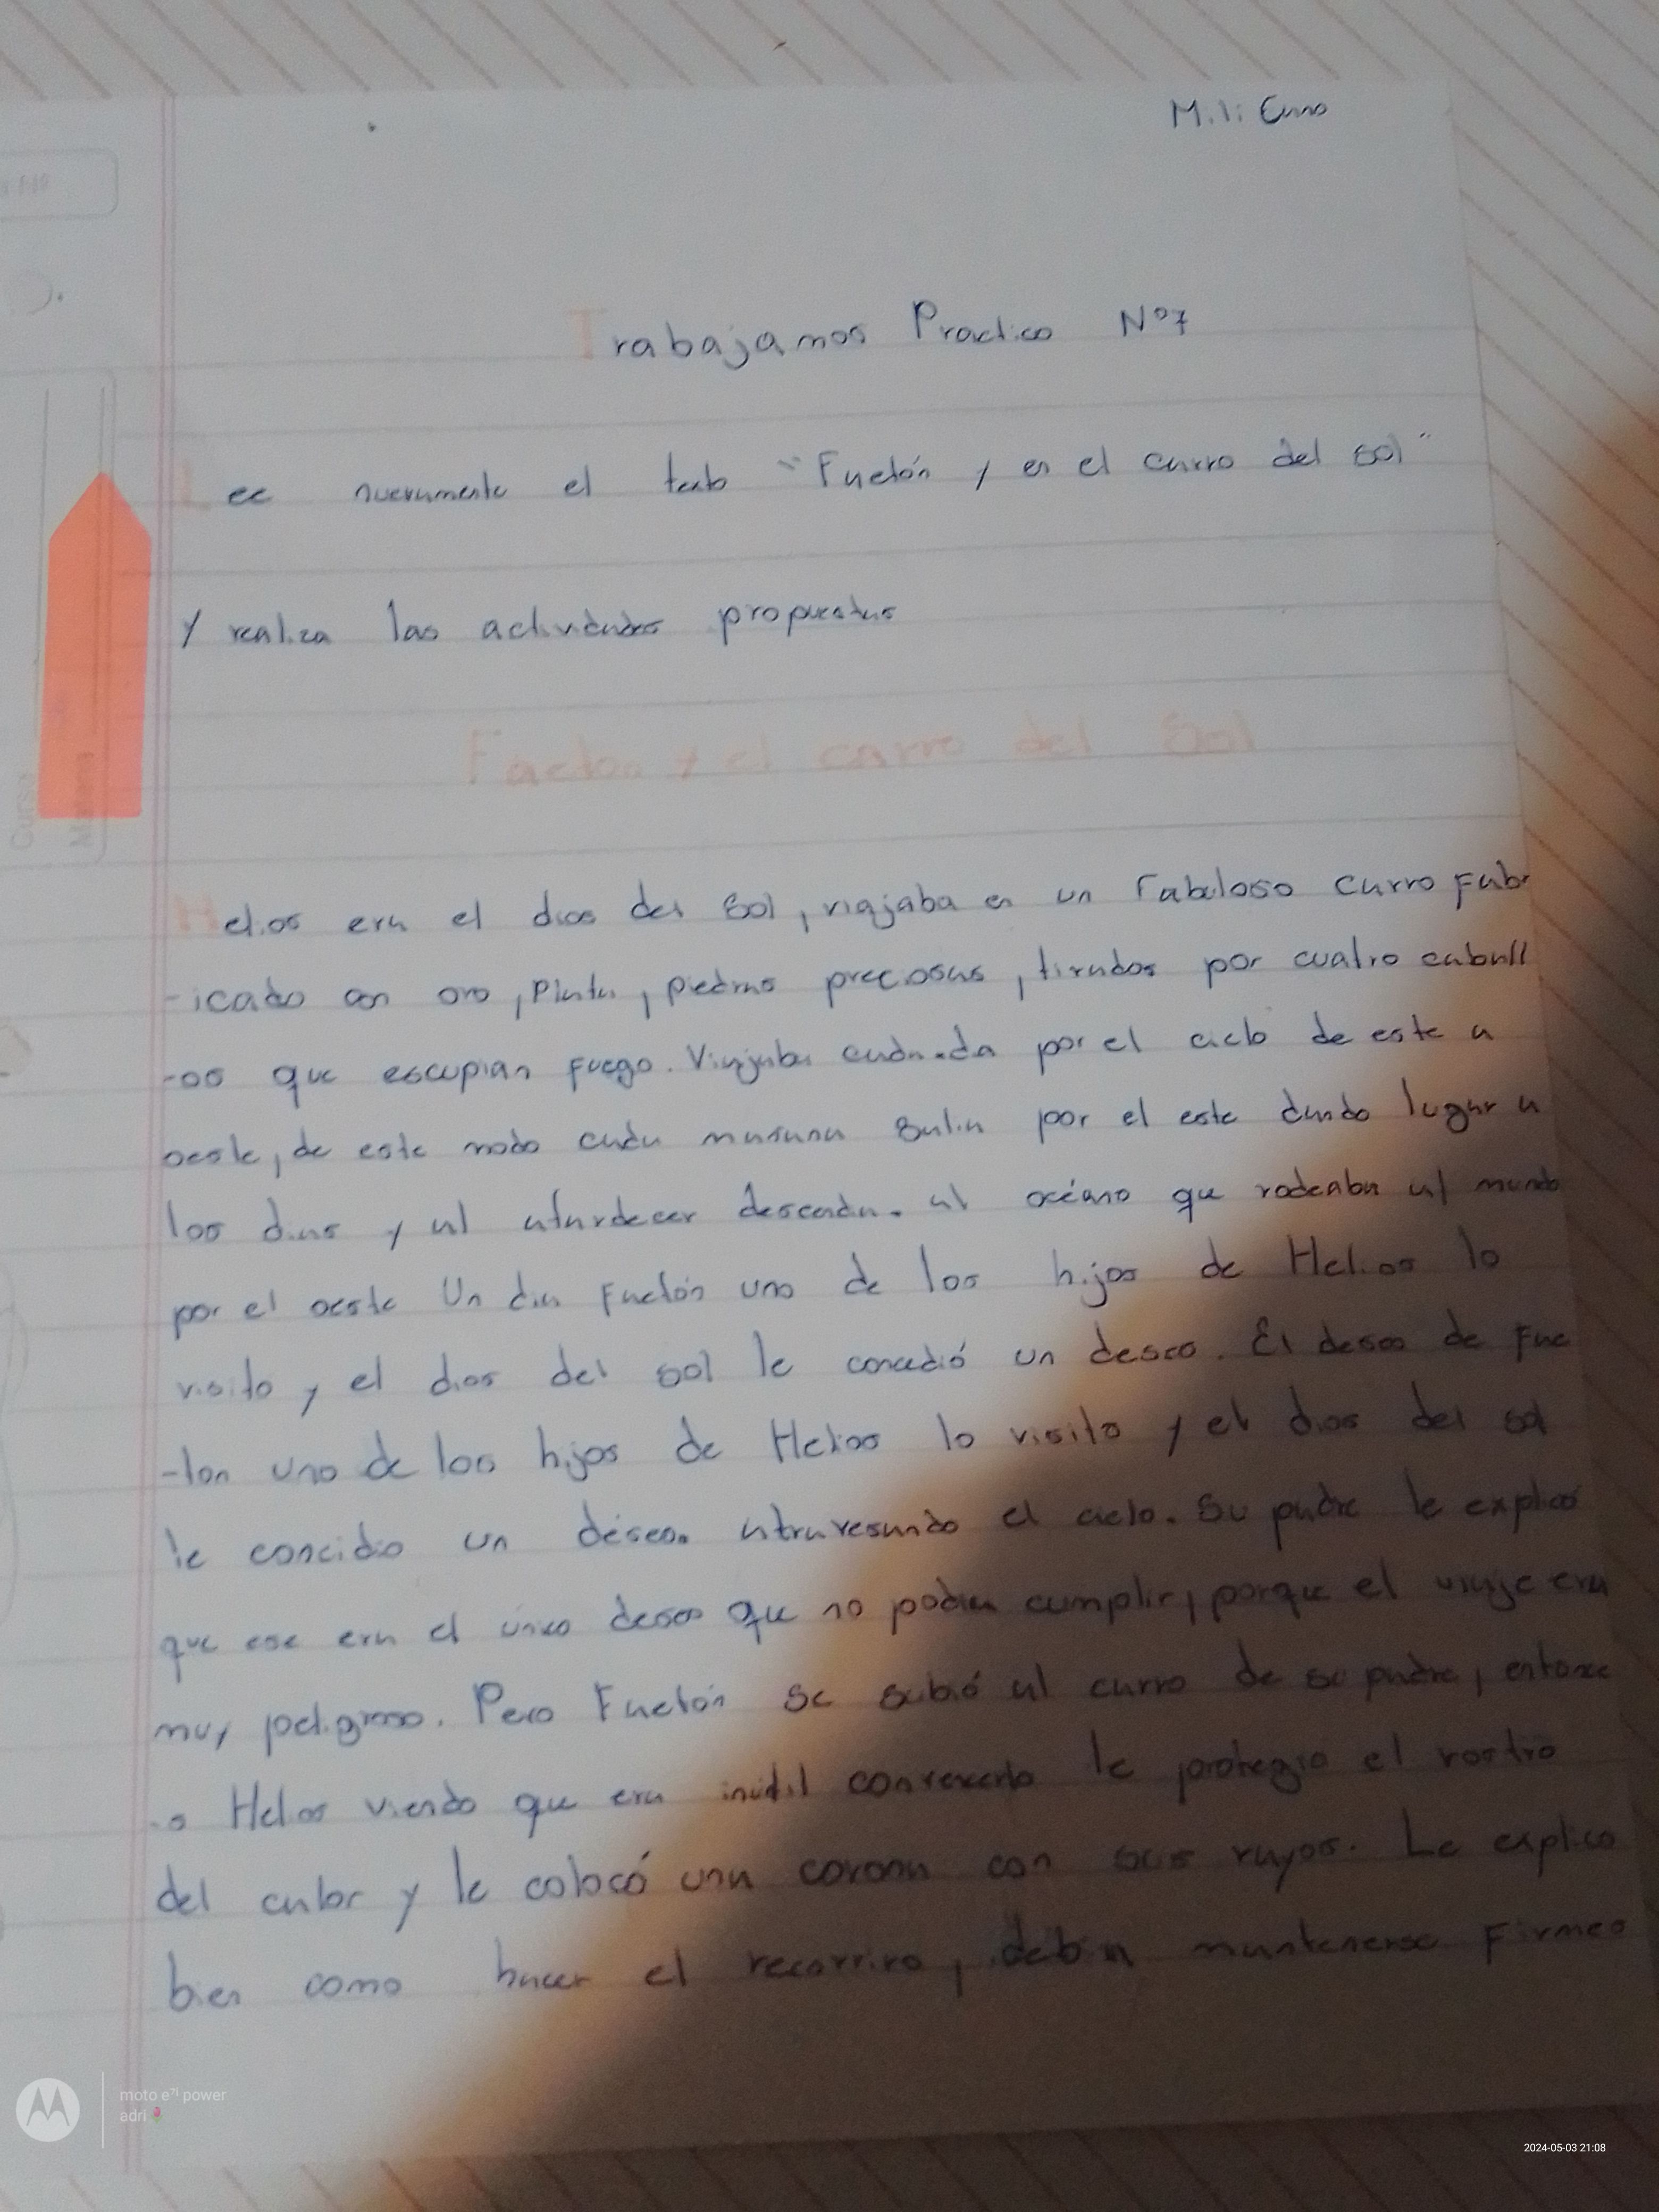 M.li
Trabajamos Practico Nº7
Lee nuevamente el texto "Faetón y en el carro del sol"
y realiza las actividades propuestas
Faeton y el carro del Sol
Helios era el dios del Sol, viajaba en un fabuloso carro fabr
-icado con oro, plata, piedras preciosas, tirados por cuatro caball
-os que escupian fuego. Viajaba cada dia por el cielo de este a
oeste, de este modo cada mañana salia por el este dando lugar a
los dias y al atardecer descendia al océano que rodeaba al mundo
por el oeste Un dia Faetón uno de los hijos de Helios lo
visito y el dios del sol le concedió un deseo. El deseo de Fae
-ton uno de los hijos de Helios lo visito y el dios del sol
le concidio un deseo. atravesando el cielo. Su padre le explicó
que ese era el único deseo que no podia cumplir, porque el viaje era
muy peligroso. Pero Faetón se subió al carro de su padre, entonce
-s Helios viendo que era inútil convencerlo le protegio el rostro
del calor y le colocó una corona con sus rayos. Le explico
bien como hacer el recorriro, debia mantenerse firmes
moto e⁷ⁱ power
adri🌷
2024-05-03 21:08
Curso